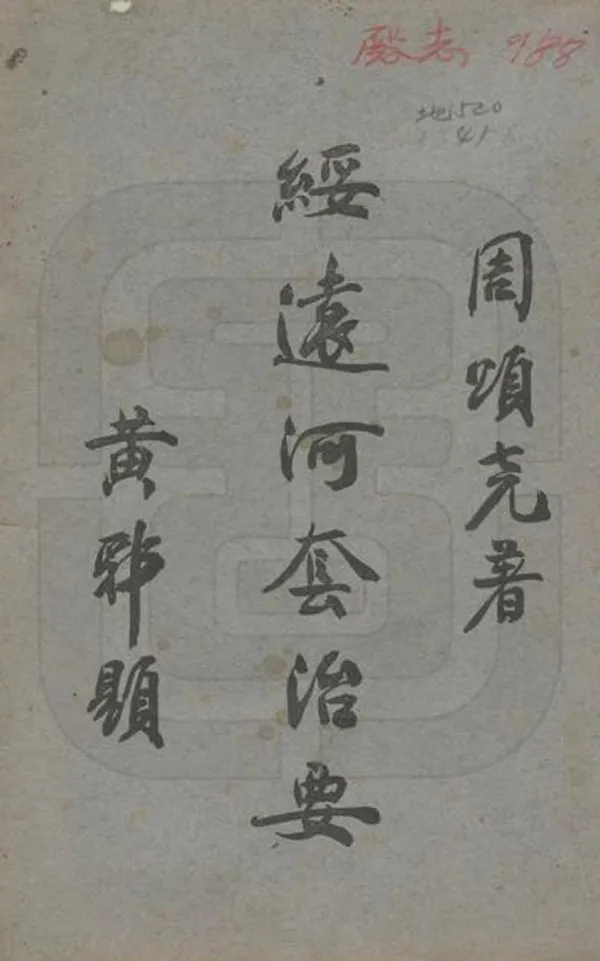 988
地520
41
周頌尭著
綏遠河套治要
黄郛題